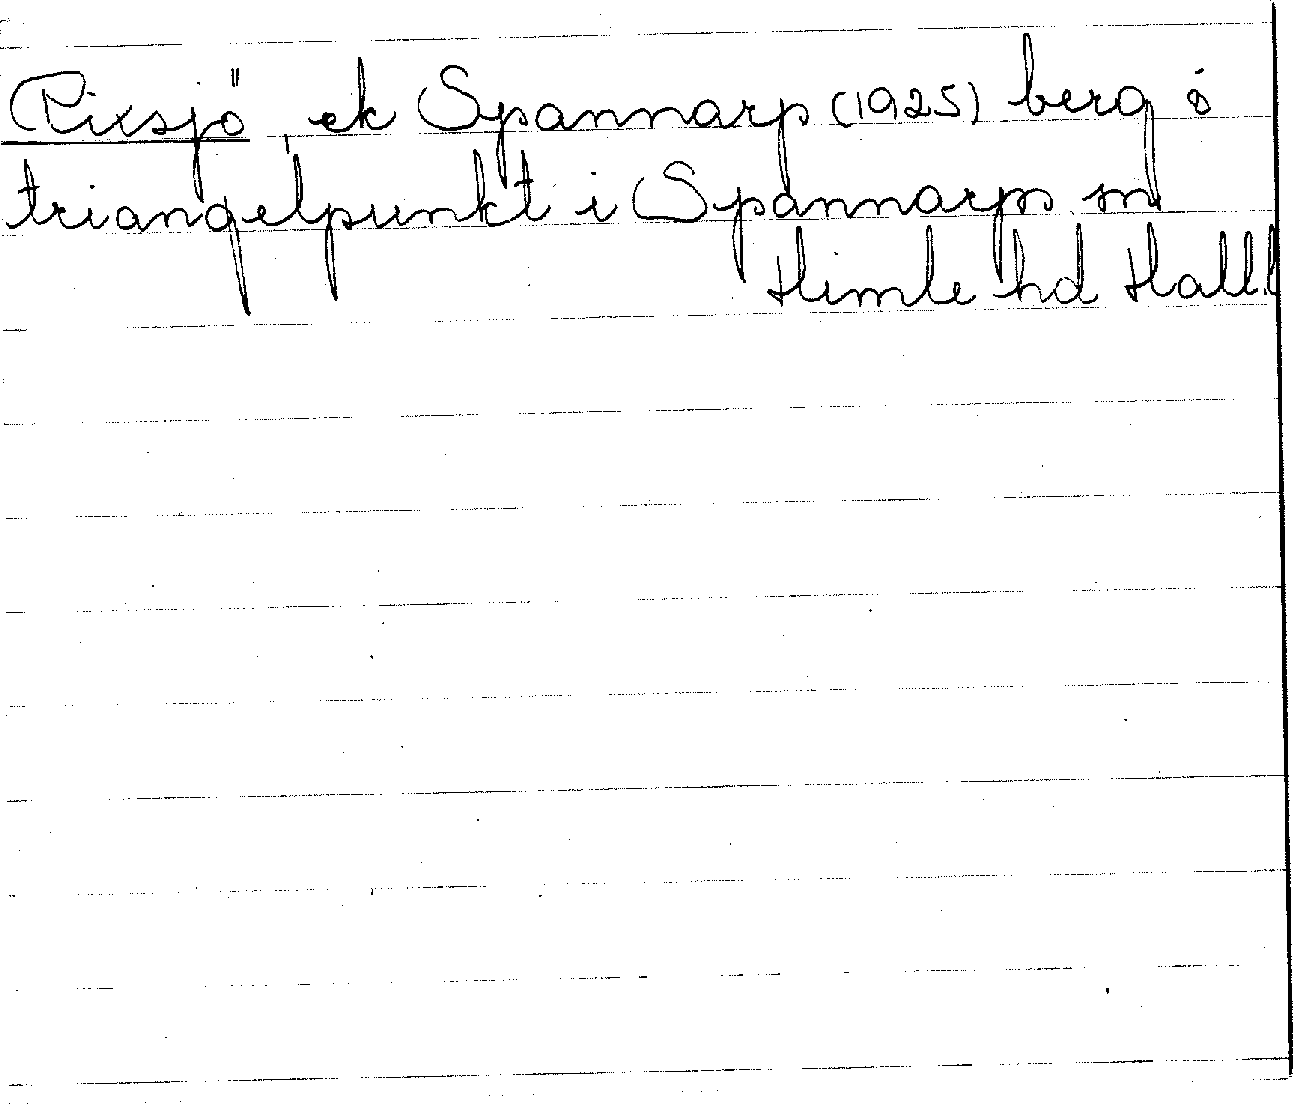 Rixsjö, ek Spannarp (1925) berg o
triangelpunkt i Spannarps sn
Himle hd Hall.l